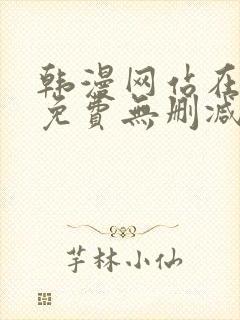 韩漫网站在
免費無删减
芊林小仙